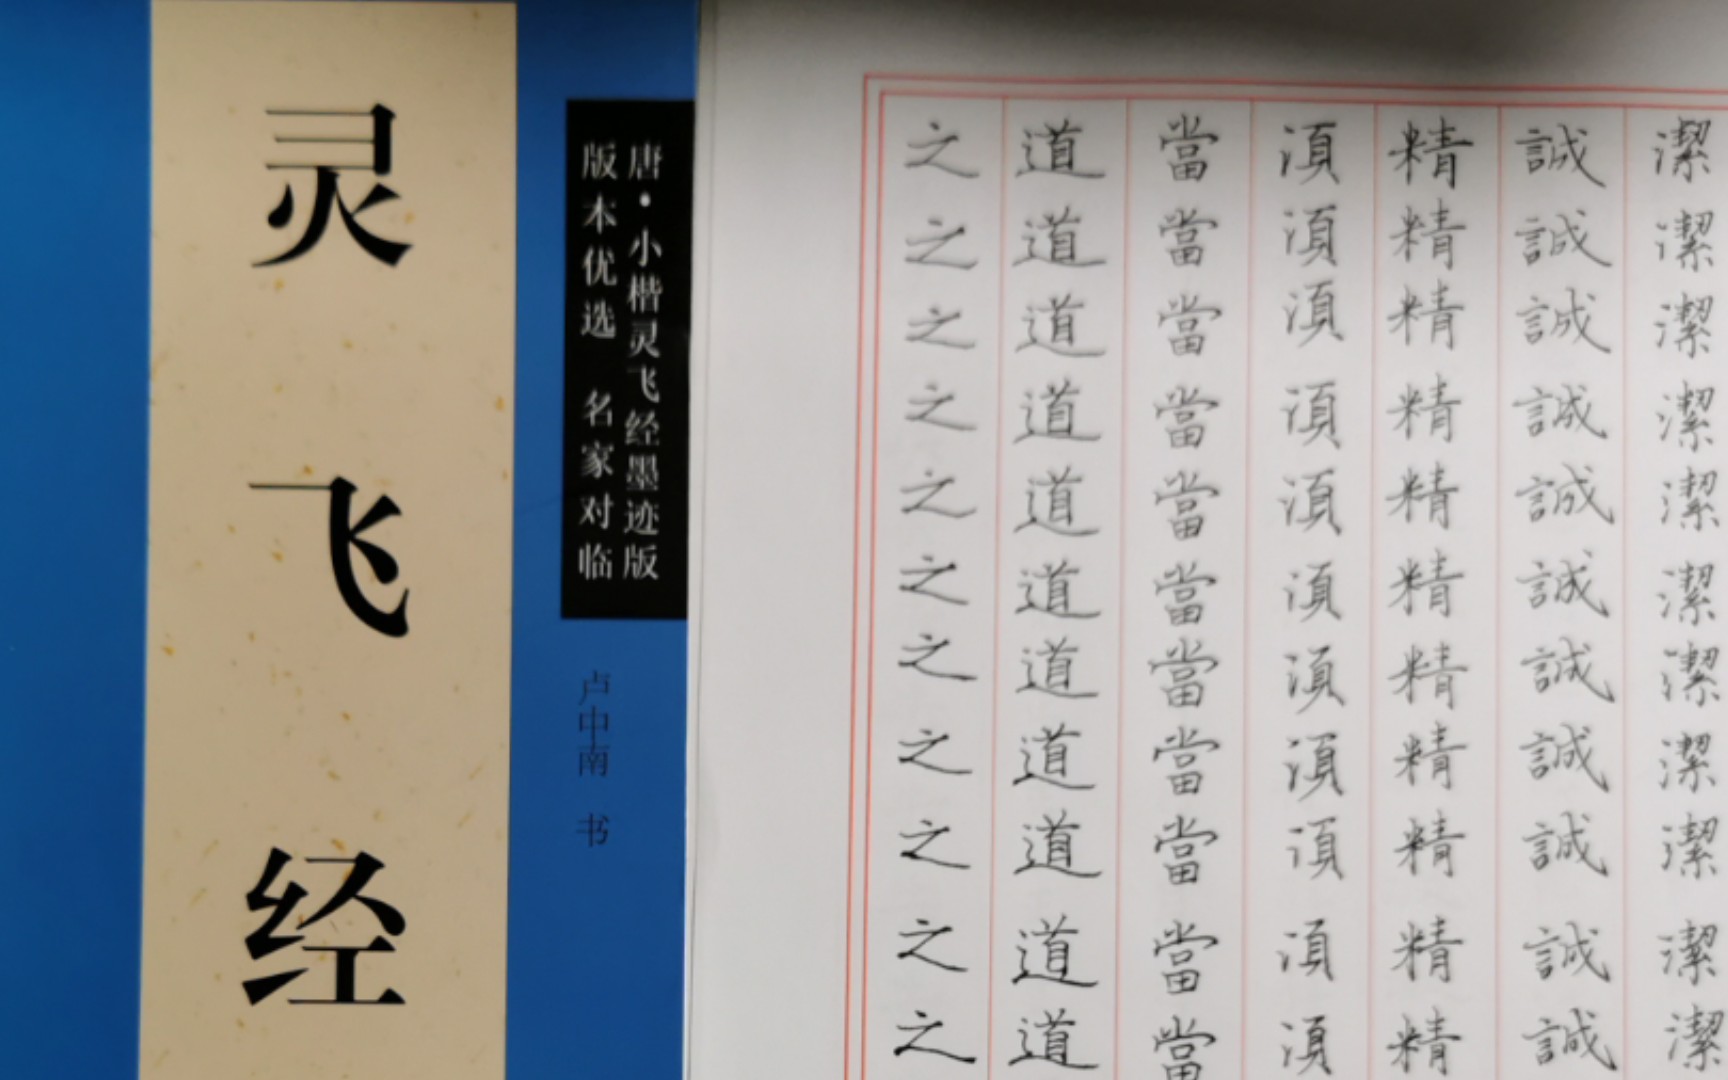 灵飞经
唐·小楷灵飞经墨迹版
版本优选 名家对临
卢中南 书
之之之之之之之之之之之
道道道道道道道道道道道
當當當當當當當當當當當
湏湏湏湏湏湏湏湏湏湏湏
精精精精精精精精精精精
誠誠誠誠誠誠誠誠誠誠誠
潔潔潔潔潔潔潔潔潔潔潔